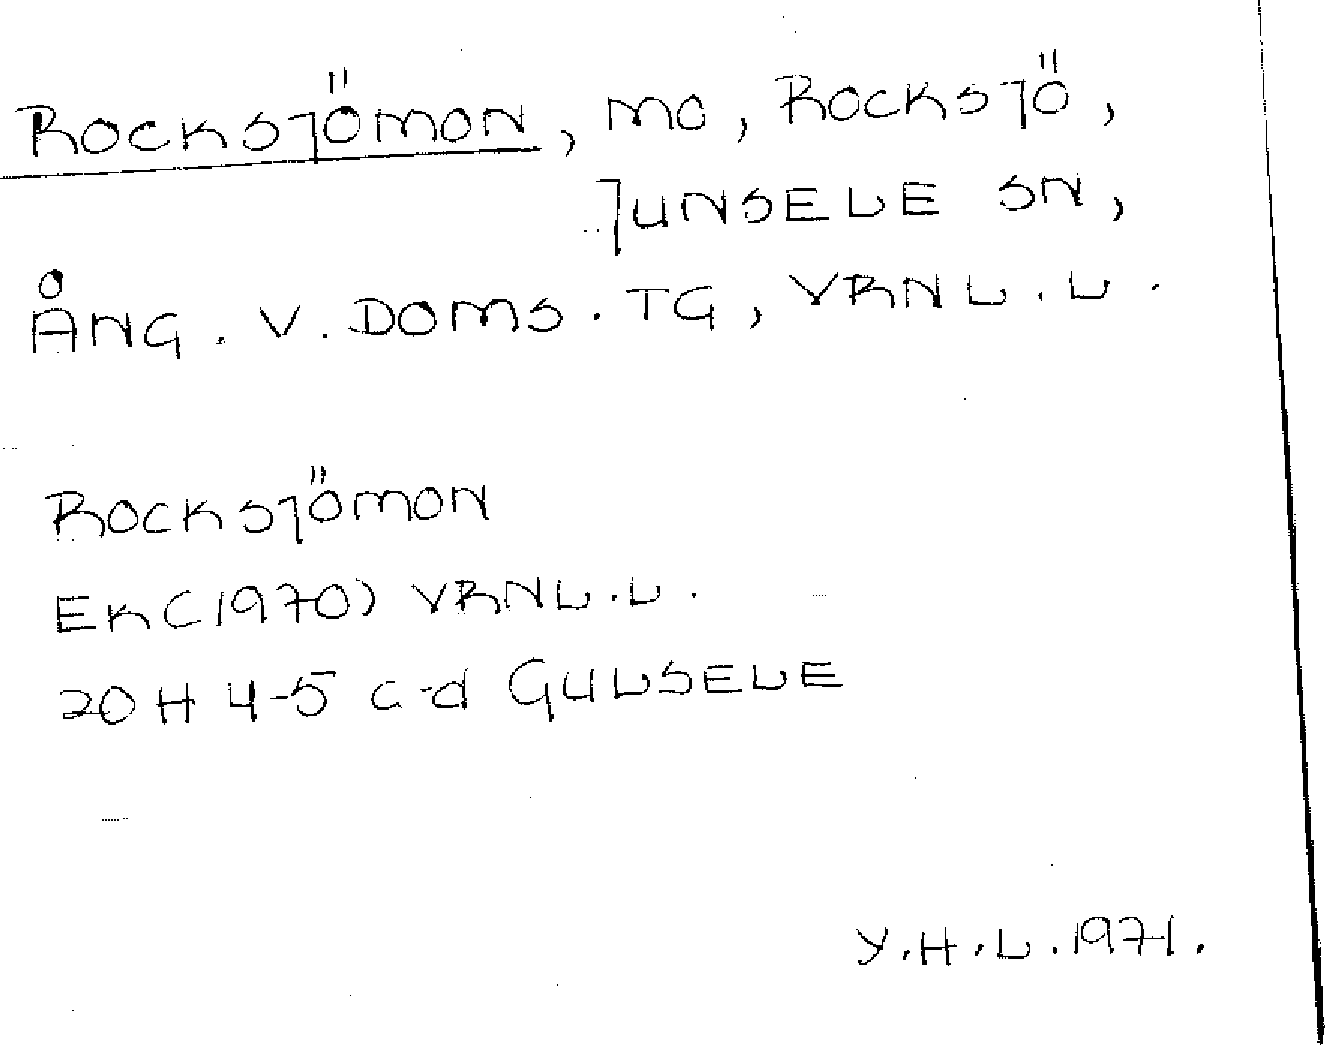 ROCKSJÖMON, MO, ROCKSJÖ,
JUNSELE SN,
ÅNG. V. DOMS. TG, VRNL.L.
ROCKSJÖMON
EK(1970) VRNL.L.
20 H 4-5 c-d GULSELE
Y.H.L.1971.